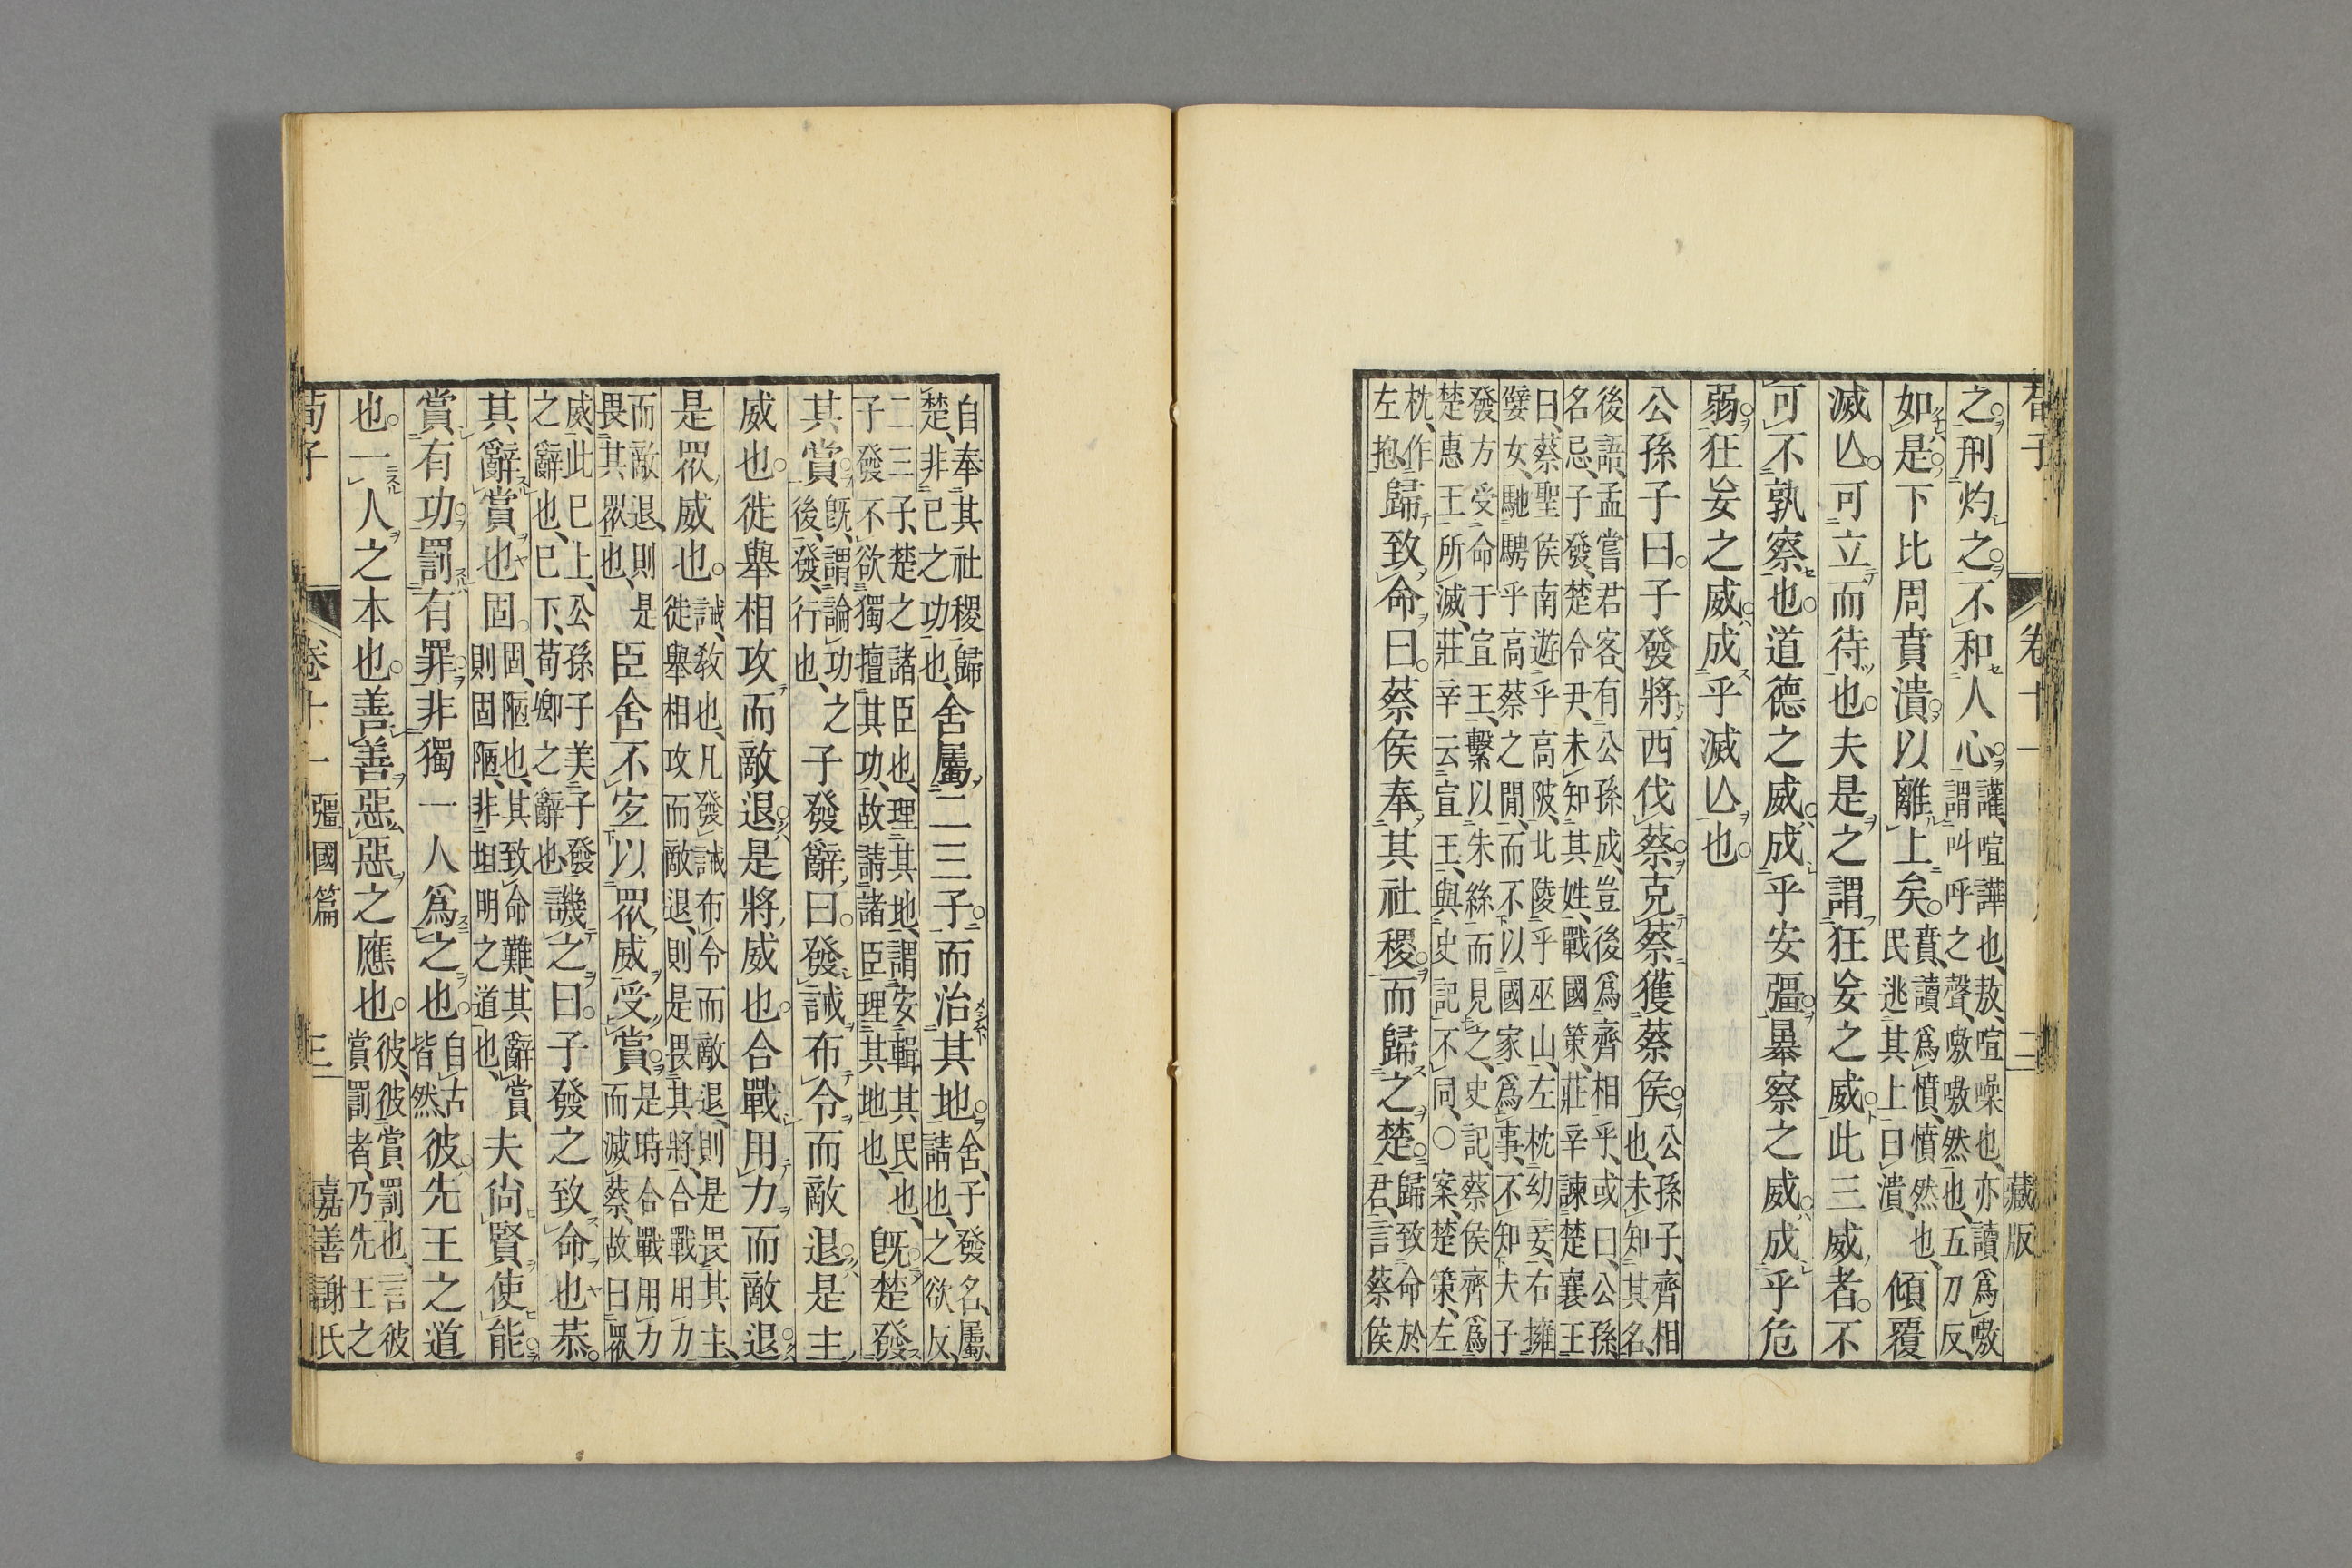 荀子 卷十一 二 藏版
之刑灼之不和人心讙喧譁也敖喧噪也亦讀爲嗷
謂叫呼之聲嗷嗷然也五刀反
如是下比周賁潰以離上矣賁讀爲憤憤然也
民逃其上曰潰傾覆
滅亾可立而待也夫是之謂狂妄之威此三威者不
可不孰察也道德之威成乎安彊㬥察之威成乎危
弱狂妄之威成乎滅亾也
公孫子曰子發將西伐蔡克蔡獲蔡侯公孫子齊相
也未知其名
後語孟嘗君客有公孫成豈後爲齊相乎或曰公孫
名忌子發楚令尹未知其姓戰國策莊辛諫楚襄王
曰蔡聖侯南遊乎高陂北陵乎巫山左枕幼妾右擁
嬖女馳騁乎高蔡之閒而不以國家爲事不知夫子
發方受命于宣王繫以朱絲而見之史記蔡侯齊爲
楚惠王所滅莊辛云宣王與史記不同○案楚策左
枕作
左抱歸致命曰蔡侯奉其社稷而歸之楚歸致命於
君言蔡侯
自奉其社稷歸
楚非己之功也舍屬二三子而治其地舍子發名屬
請也之欲反
二三子楚之諸臣也理其地謂安輯其民也
子發不欲獨擅其功故請諸臣理其地也旣楚發
其賞旣謂論功之
後發行也子發辭曰發誡布令而敵退是主
威也徙舉相攻而敵退是將威也合戰用力而敵退
是眾威也誡敎也凡發誡布令而敵退則是畏其主
徙舉相攻而敵退則是畏其將合戰用力
而敵退則是
畏其眾也臣舍不宐以眾威受賞是時合戰用力
而滅蔡故曰眾
威此巳上公孫子美子發
之辭也巳下荀卿之辭也譏之曰子發之致命也恭
其辭賞也固固陋也其致命難其辭賞
則固陋非坦明之道也夫尚賢使能
賞有功罰有罪非獨一人爲之也自古
皆然彼先王之道
也一人之本也善善惡惡之應也彼彼賞罰也言彼
賞罰者乃先王之
荀子 卷十一 彊國篇 三 嘉善謝氏